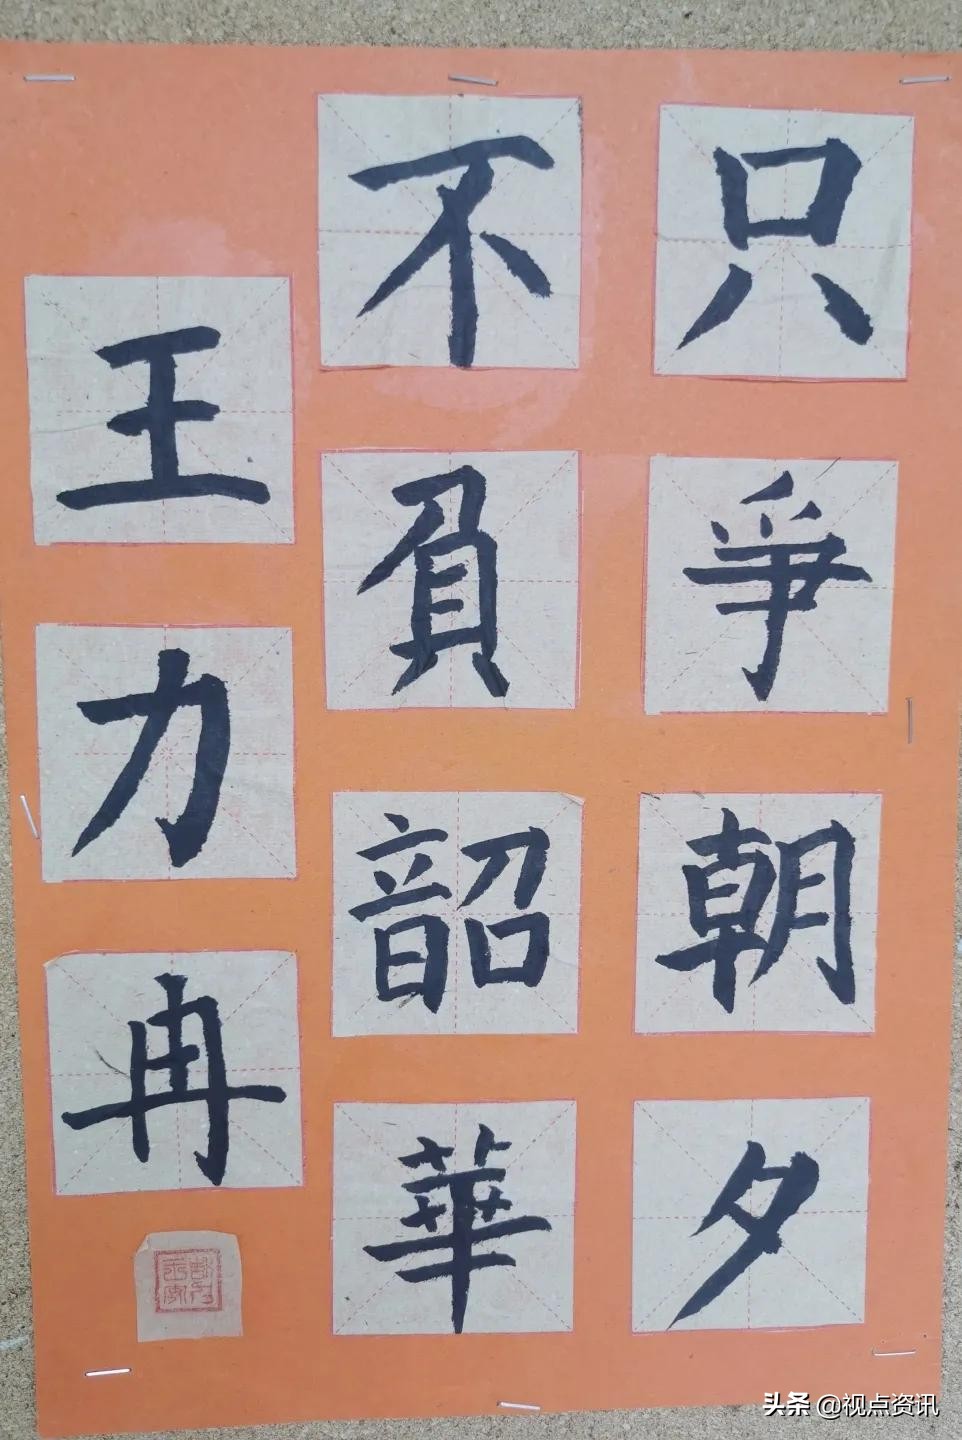 只爭朝夕
不負韶華
王力冉
头条 @视点资讯